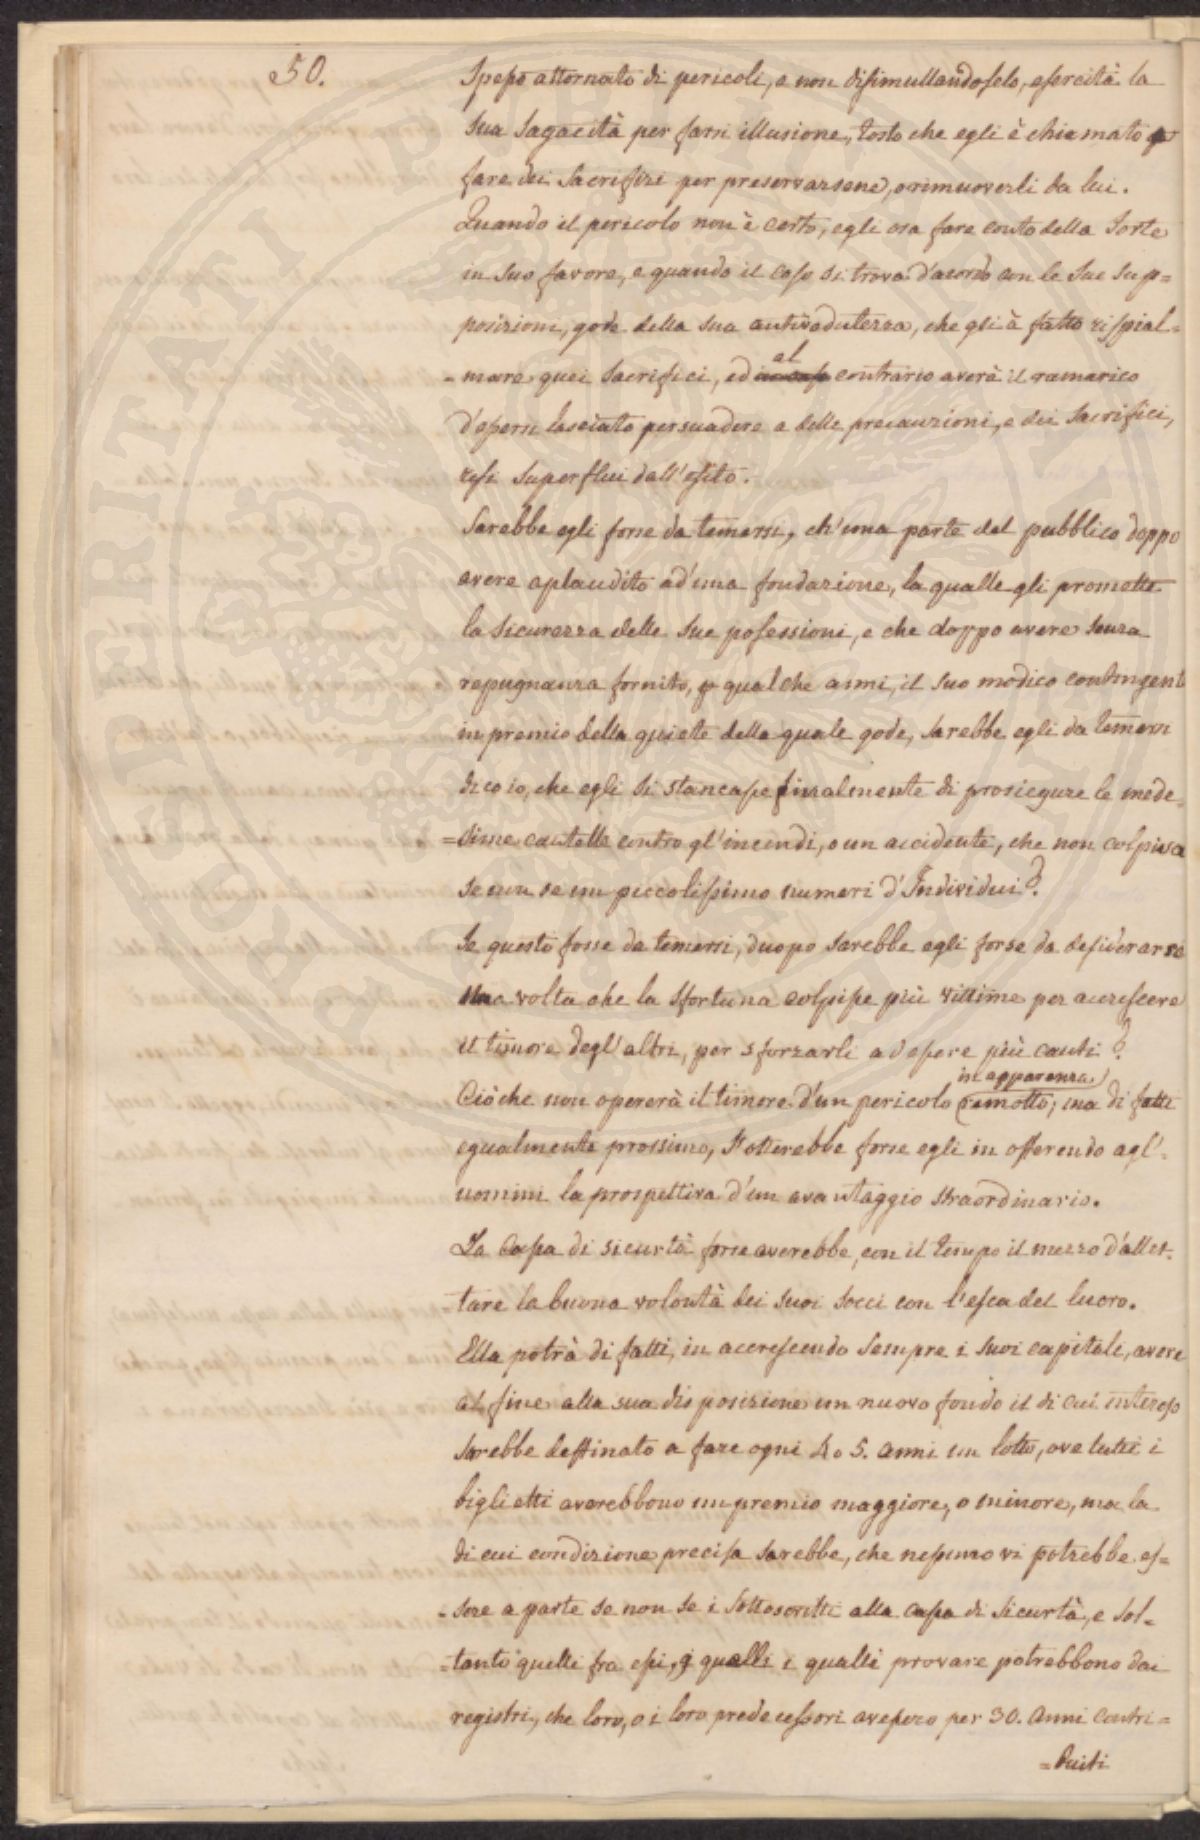 50.
Spesso attorniato di pericoli, e non dissimullandoselo, esercità la
sua sagacità per farsi illusione, tosto che egli è chiamato a
fare dei sacrifizi per preservarsene, o rimuoverli da lui.
Quando il pericolo non è certo, egli osa fare conto della sorte
in suo favore, e quando il caso si trova d'acordo con le sue sup=
posizioni, gode della sua antiveduterza, che gli à fatto rispial=
=mare quei sacrifici, ed al contrario averà il ramarico
d'essersi lasciato persuadere a delle precauzioni, e dei sacrifici,
resi superflui dall'esito.
Sarebbe egli forse da temersi, ch'una parte del pubblico doppo
avere aplaudito ad'una fondazione, la qualle gli promette
la sicurezza delle sue possessioni, e che doppo avere senza
repugnanza fornito, p qualche anni, il suo modico contingent
in premio della quiete della quale gode, sarebbe egli da temersi
dico io, che egli si stancasse finalmente di prosiegure le mede=
=sime cautelle contro gl'incendi, o un accidente, che non colpisca
se non se un piccolissimo numeri d'Individui?
Se questo fosse da temersi, duopo sarebbe egli forse da desiderarse
una volta che la sfortuna colpisse più vittime per accrescere
il timore degl'altri, per sforzarli ad essere più cauti?
in apparenza
Ciòche non opererà il timore d'un pericolo remotto; ma di fatti
egualmente prossimo, s'otterebbe forse egli in offerendo agl'
uomini la prospettiva d'un avantaggio straordinario.
La Cassa di sicurtà forse averebbe, con il tempo il mezzo d'allet=
tare la buona volontà dei suoi socci con l'esca del lucro.
Ella potrà di fatti, in accrescendo sempre i suoi capitali, avere
al fine alla sua disposizione un nuovo fondo il di cui interesso
sarebbe destinato a fare ogni 4 o 5. anni un lotto, ove tutti i
biglietti averebbono un premio maggiore, o minore, ma la
di cui condizione precisa sarebbe, che nessuno vi potrebbe es=
=sere a parte se non se i sottoscritti alla cassa di sicurtà, e sol=
=tanto quelli fra essi, i qualli provare potrebbono dai
registri, che loro, o i loro predecessori avessero per 30. anni contri=
=buiti